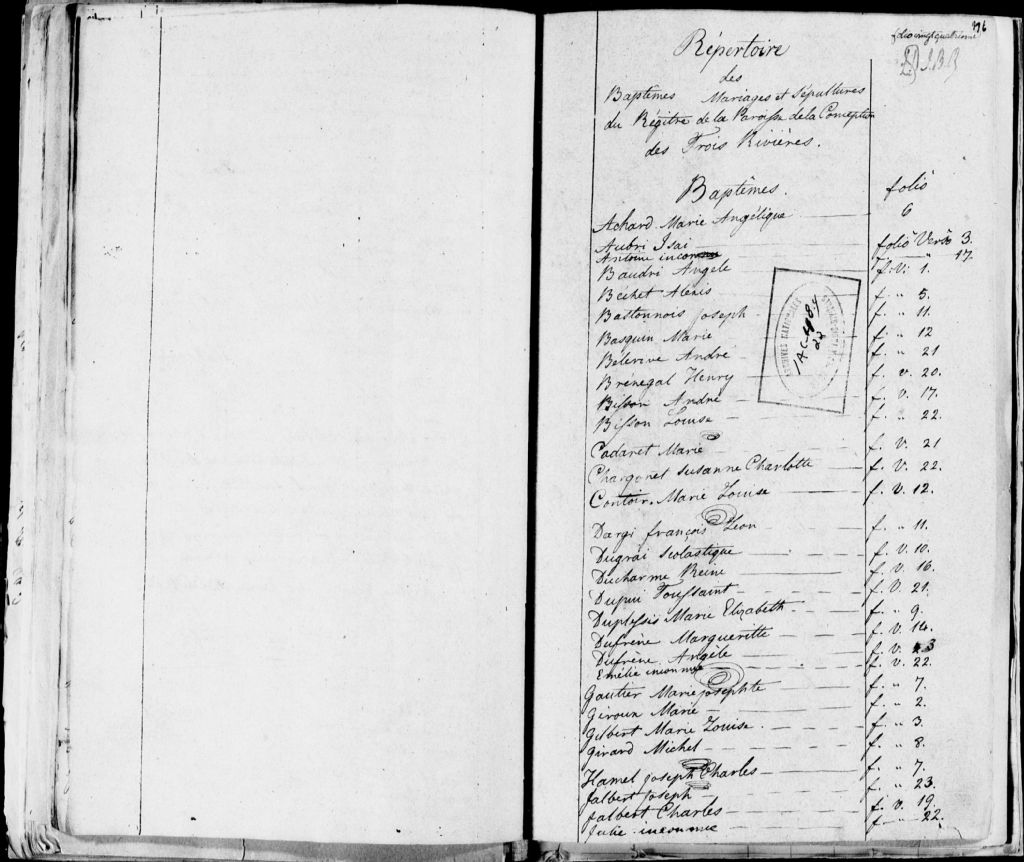 376
folio vingt quatrieme
Répertoire
des
Baptêmes Mariages et Sépultures
du Régitre de la Paroisse de la Conception
des Trois Rivières.
Baptêmes. folio
Achard Marie Angélique 6
Aubri Isai folio Verso 3.
Antoine inconnu f. " 17.
Baudri Angele f. V. 1.
Béchet Alexis f. " 5.
Bastonnois Joseph f. " 11.
Basquin Marie f. " 12
Belerive André f. " 21
Brénegal Henry f. v. 20.
Bisson André f. v. 17.
Bisson Louise f. " 22.
Cadaret Marie f. V. 21
Chargonet Susanne Charlotte f. V. 22.
Contoir Marie Louise f. V. 12.
Dargi françois Léon f. " 11.
Dugrai Scolastique f. V. 10.
Ducharme Reine f. V. 16.
Dupui Toussaint f. V. 21.
Duplessis Marie Elizabeth f. " 9.
Dufrène Margueritte f. V. 14.
Dufrène Angèle f. V. 3
Emélie inconnue f. V. 22.
Gautier Marie josephte f. " 7.
Giroux Marie f. " 2.
Gilbert Marie Louise f. " 3.
Girard Michel f. " 8.
Hamel joseph Charles f. " 7.
Jalbert joseph f. " 23.
Jalbert Charles f. v. 19.
Julie inconnue f. " 22.
ARCHIVES NATIONALES